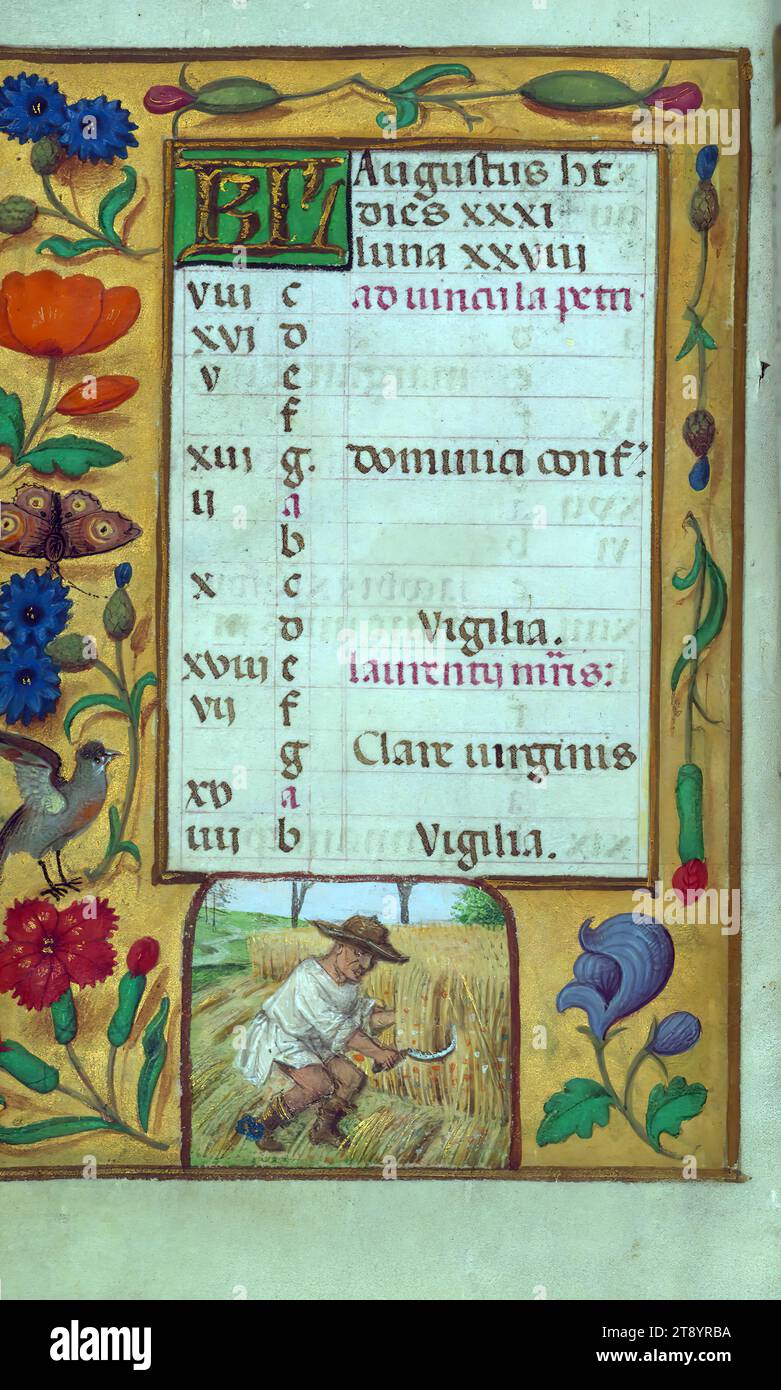 KL Augustus ht
dies xxxi
luna xxviiij
viij c ad uincula petri
xvj d
v e
f
xiij g. dominici conf
ij a
b
x c
d Vigilia.
xviij e laurentij mris:
vij f
g Clare uirginis
xv a
iiij b Vigilia.
alamy
Image ID: 2T8YRBA
www.alamy.com